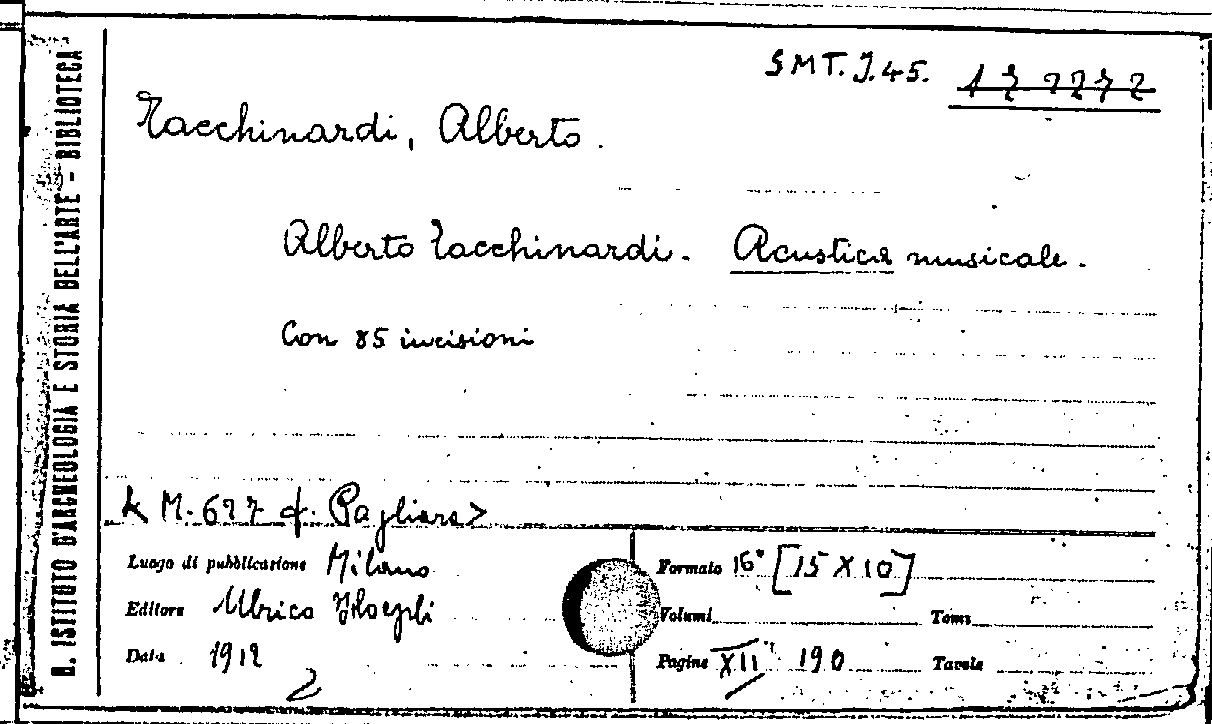 R. ISTITUTO D'ARCHEOLOGIA E STORIA DELL'ARTE - BIBLIOTECA
SMT. J. 45.
Tacchinardi, Alberto.
Alberto Tacchinardi. Acustica musicale.
Con 85 incisioni
M. 677 Pagliara>
Luogo di pubblicazione Milano
Formato 16° [15 X 10]
Editore Ulrico Hoepli
Volumi
Tomi
Data 1912
Pagine XII 190
Tavole
2